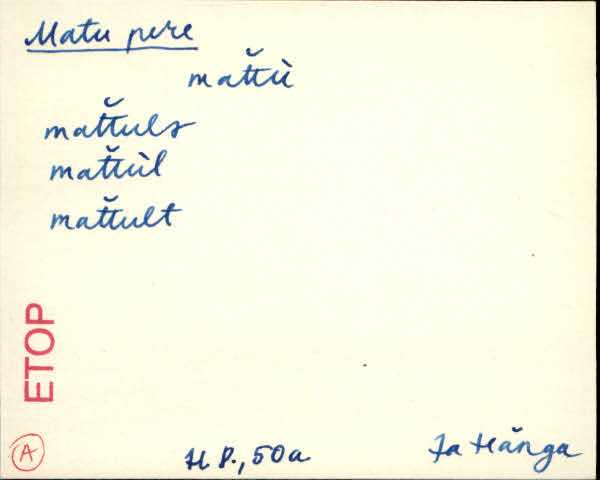 Matu pere
mat̆tù
mat̆tuls
mat̆tùl
mat̆tult
ETOP
A
H P., 50a
Ja Hănga